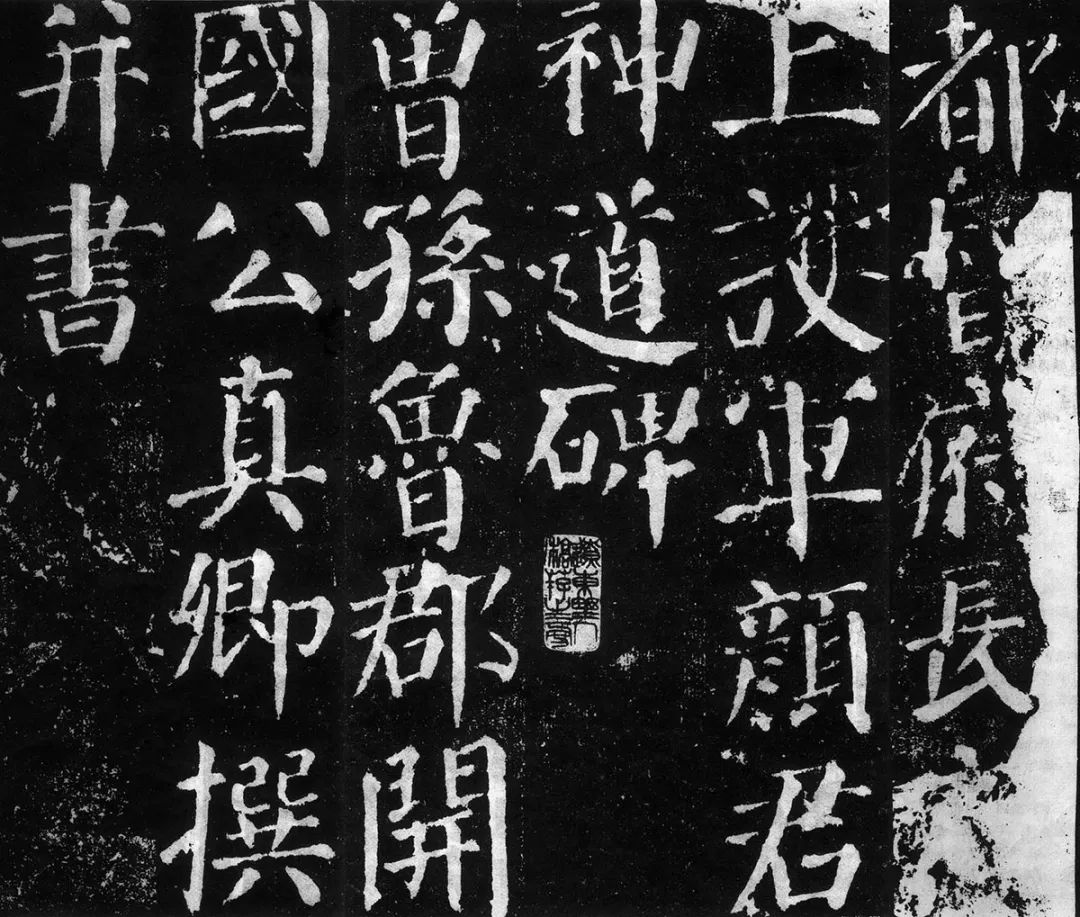 都督府長
上護軍顏君
神道碑
曾孫魯郡開
國公真卿撰
并書